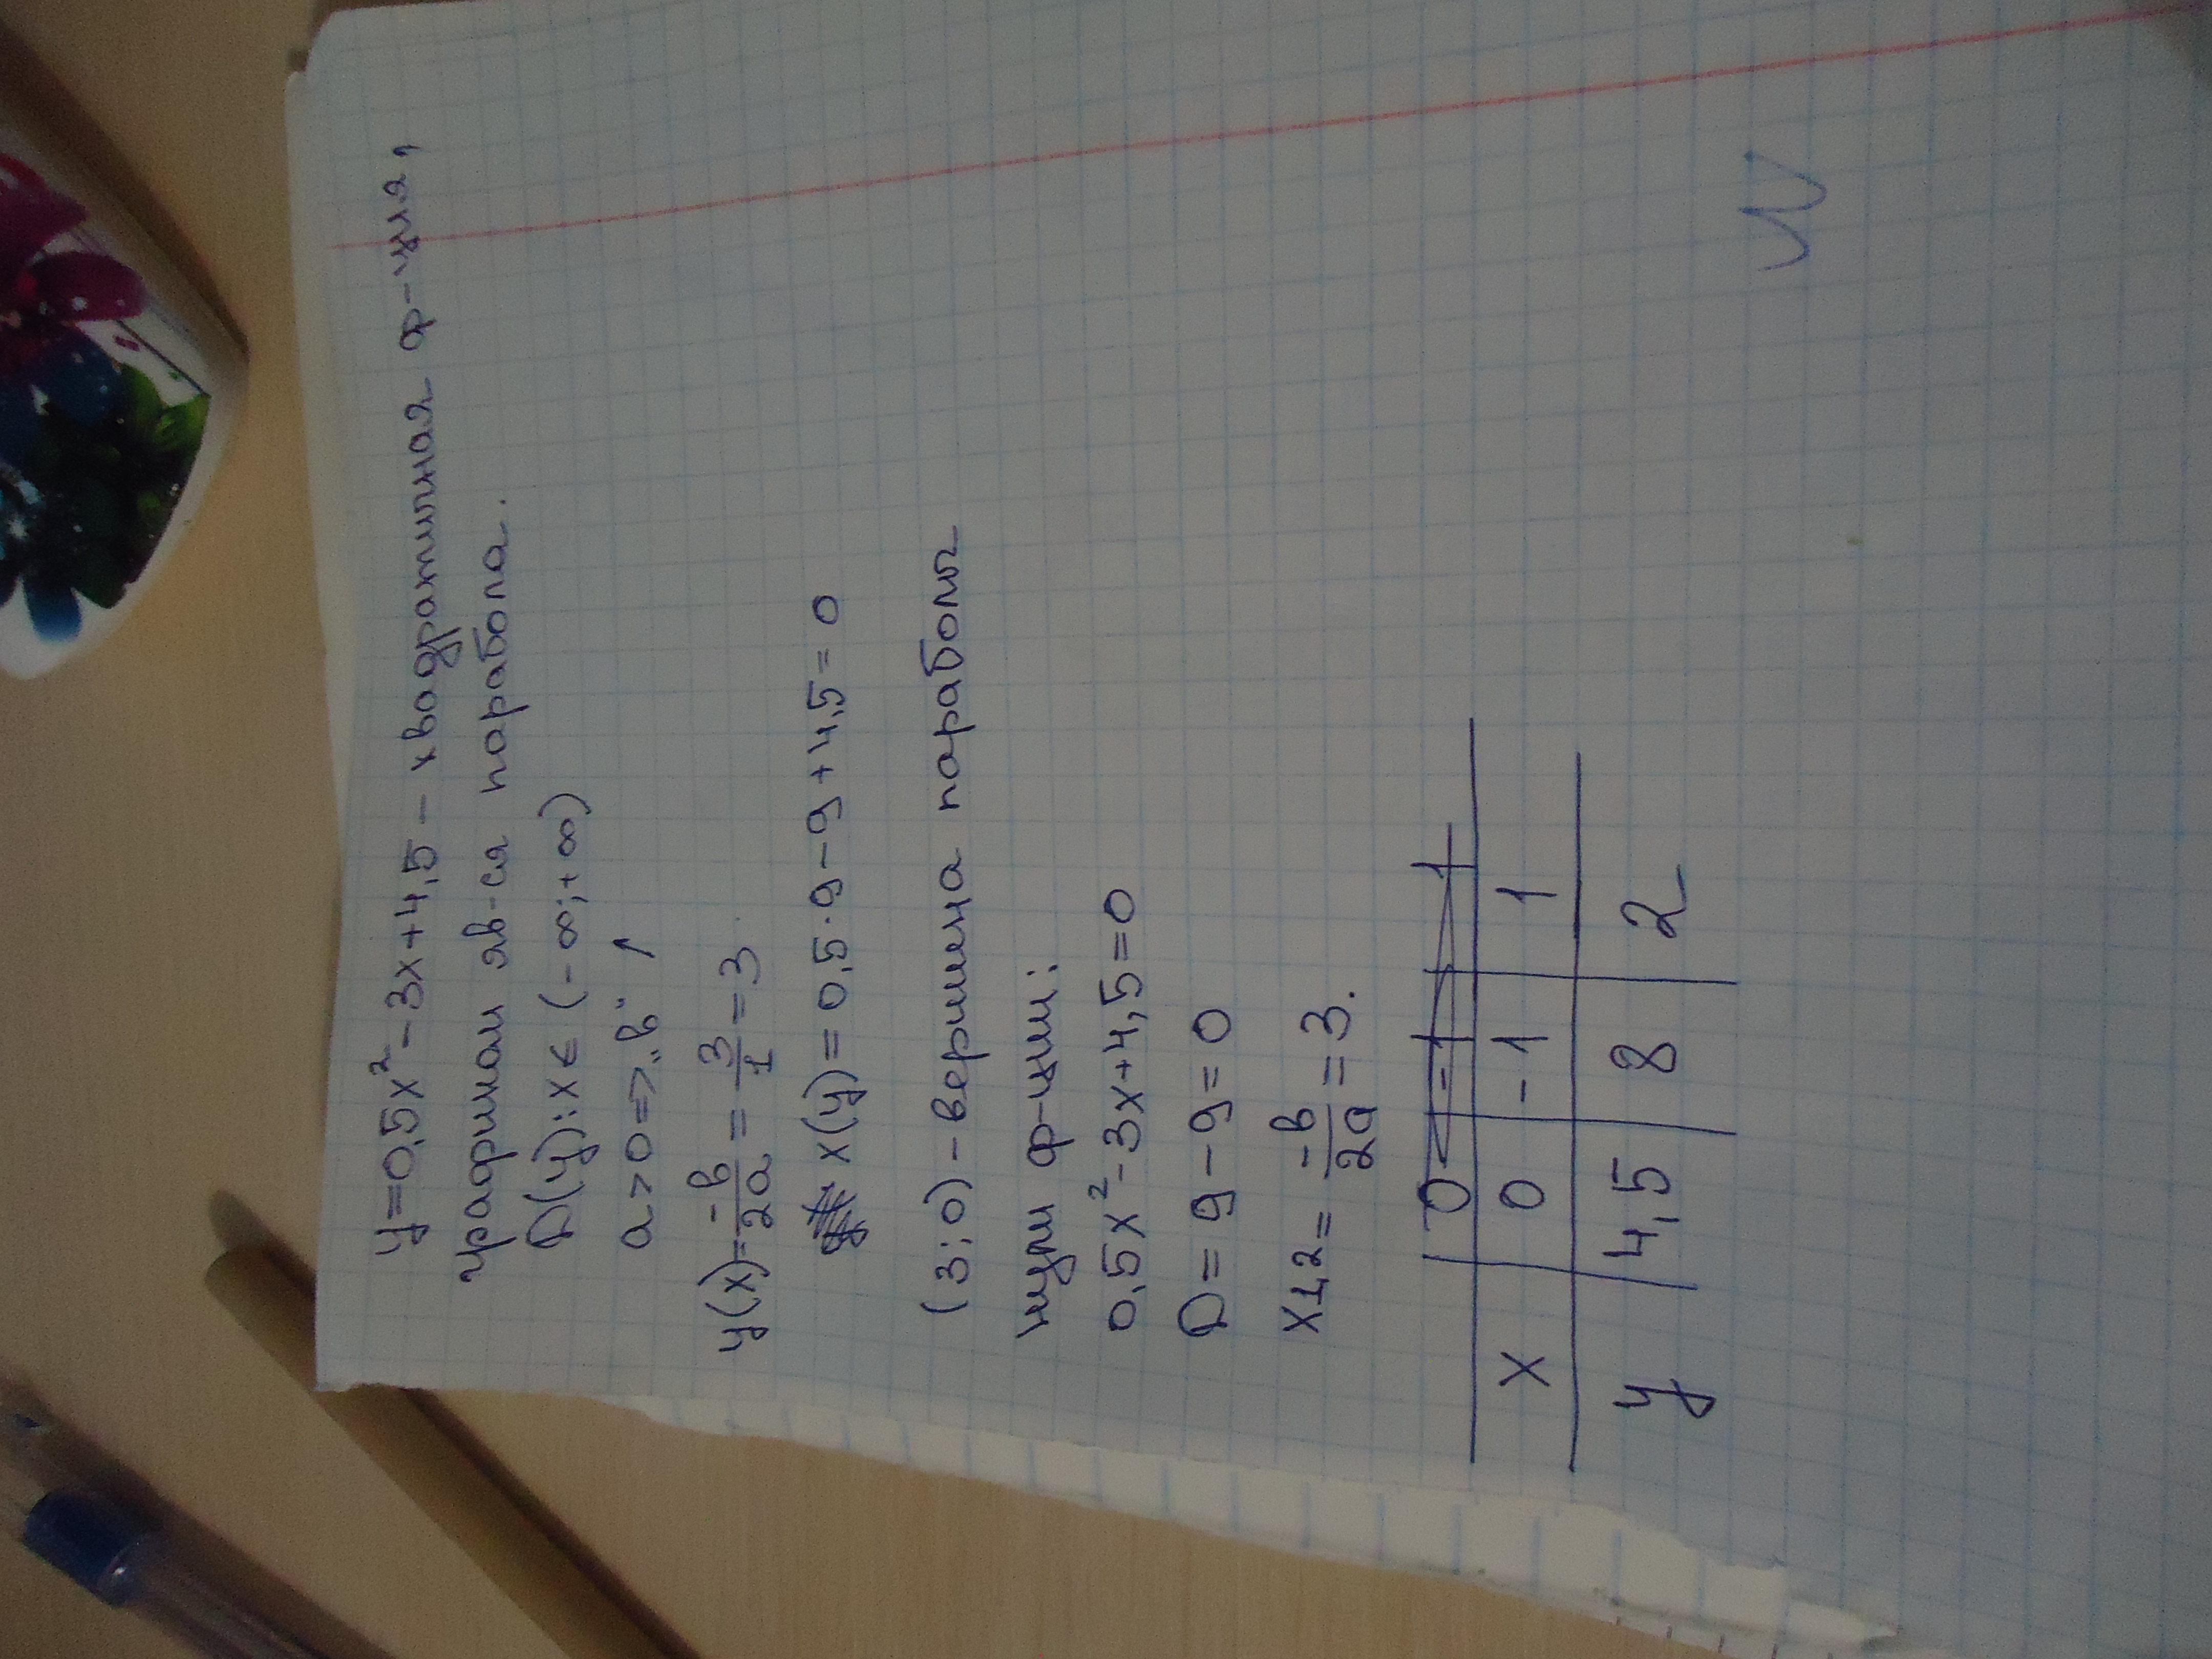 y=0,5x²-3x+4,5 - квадратичная ф-ция,
графиком яв-ся парабола.
D(y): x ∈ (-∞;+∞)
a>0 => „в" ↑
y(x)=-в/2a = 3/1 = 3
x(y)=0,5·9-9+4,5=0
(3;0) - вершина параболы
нули ф-ции:
0,5x²-3x+4,5=0
D=9-9=0
x1,2=-в/2a=3.
0 -1 1
x 0 -1 1
y 4,5 8 2